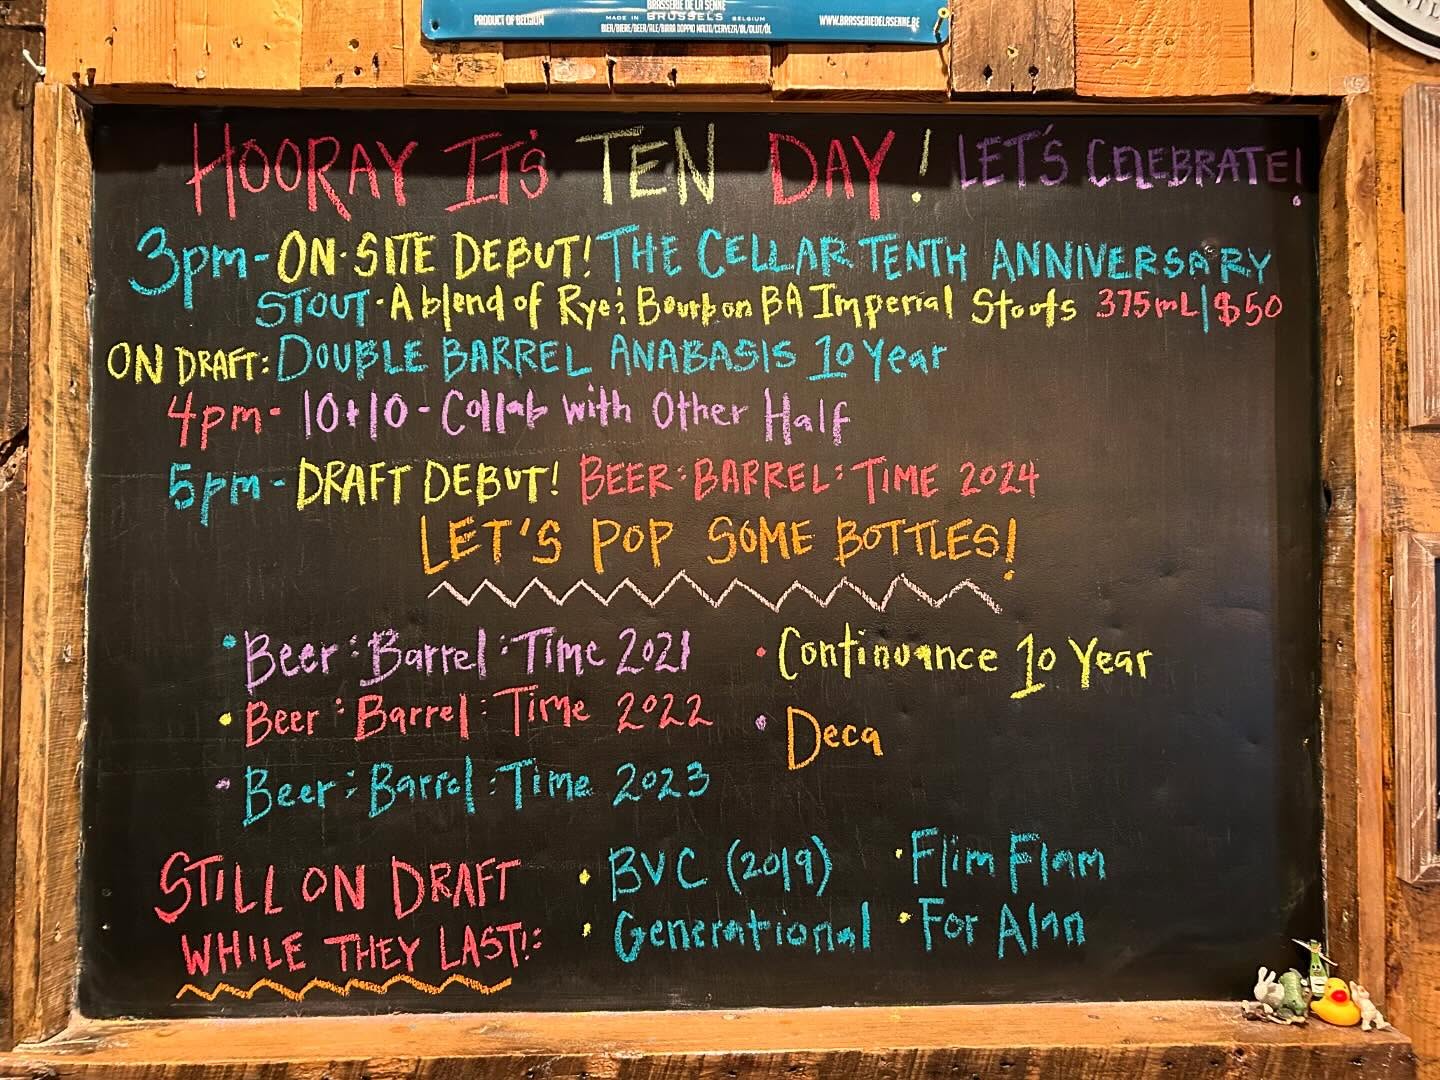 BRASSERIE DE LA SENNE
PRODUCT OF BELGIUM
MADE IN BRUSSELS BELGIUM
WWW.BRASSERIEDELASENNE.BE
BIER/BIERE/BEER/ALE/BIRRA DOPPIO MALTO/CERVEZA/ØL/OLUT/ÖL
HOORAY IT'S TEN DAY! LET'S CELEBRATE!
3pm- ON-SITE DEBUT! THE CELLAR TENTH ANNIVERSARY
STOUT - A blend of Rye & Bourbon BA Imperial Stouts 375mL | $50
ON DRAFT: DOUBLE BARREL ANABASIS 10 Year
4pm- 10+10 - Collab with Other Half
5pm- DRAFT DEBUT! BEER:BARREL:TIME 2024
LET'S POP SOME BOTTLES!
• Beer:Barrel:Time 2021
• Beer:Barrel:Time 2022
• Beer:Barrel:Time 2023
• Continuance 10 Year
• Deca
STILL ON DRAFT
WHILE THEY LAST!:
• BVC (2019)
• Generational
• Flim Flam
• For Alan